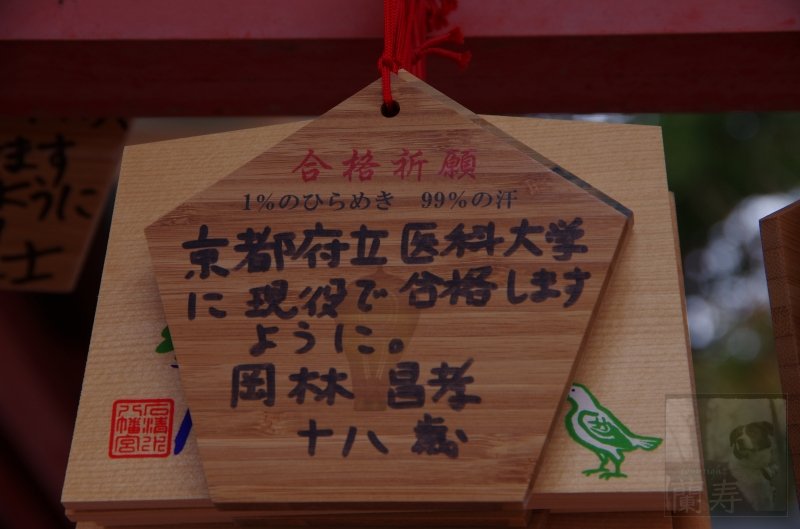 合格祈願
1%のひらめき 99%の汗
京都府立医科大学
に現役で合格します
ように。
岡林昌孝
十八歳
石清水
八幡宮
ます
ように
士
copyright
蘭寿